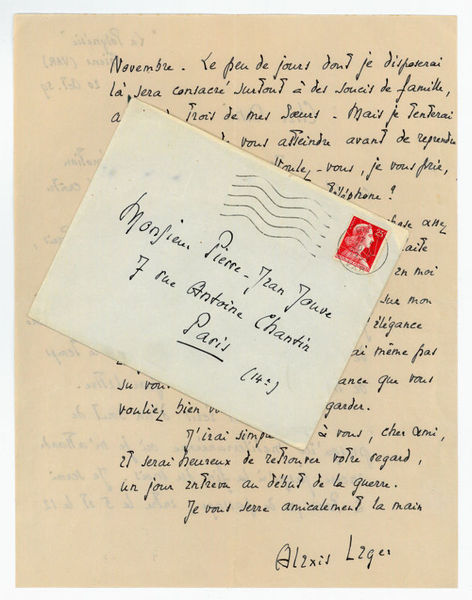 Novembre. Le peu de jours dont je disposerai
là sera consacré surtout à des soucis de famille,
trois de mes Sœurs - Mais je tenterai
de vous atteindre avant de reprendre
Voulez-vous, je vous prie,
téléphone?
en moi
sur mon
élégance
même pas
su vous
ance que vous
vouliez bien garder.
J'irai simp à vous, cher ami,
et serai heureux de retrouver votre regard,
un jour entrevu au début de la guerre.
Je vous serre amicalement la main
Alexis Leger
25
Monsieur Pierre-Jean Jouve
7 rue Antoine Chantin
Paris
(14e)